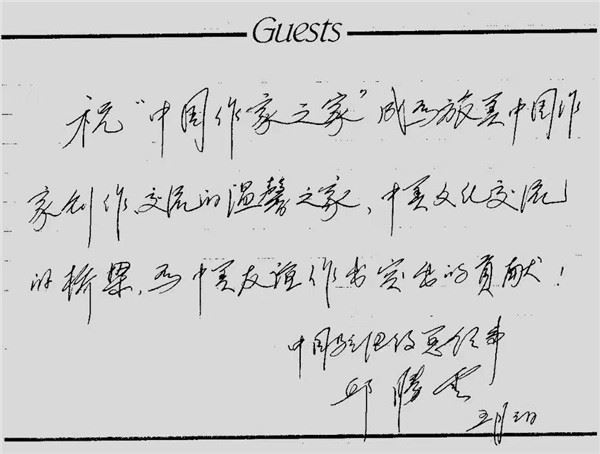 Guests
祝“中国作家之家”成为旅美中国作
家创作、交流的温馨之家、中美文化交流
的桥梁，为中美友谊作出突出的贡献！
中国驻纽约总领事
邱胜云